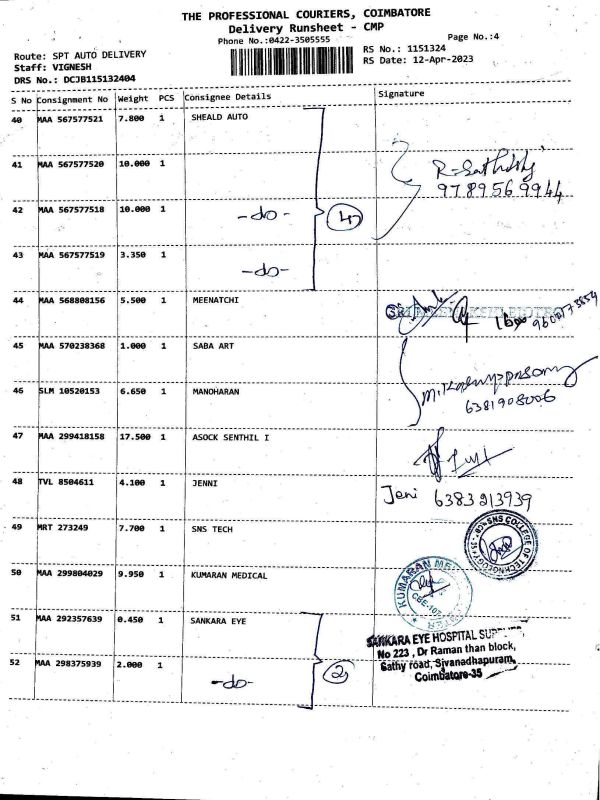 THE PROFESSIONAL COURIERS, COIMBATORE
Delivery Runsheet - CMP
Phone No.:0422-3505555
Page No.:4
Route: SPT AUTO DELIVERY
RS No.: 1151324
Staff: VIGNESH
RS Date: 12-Apr-2023
DRS No.: DCJB115132404
S No Consignment No Weight PCS Consignee Details Signature
40 MAA 567577521 7.800 1 SHEALD AUTO
41 MAA 567577520 10.000 1
9789569944
42 MAA 567577518 10.000 1 -do- 4
43 MAA 567577519 3.350 1 -do-
44 MAA 568808156 5.500 1 MEENATCHI
45 MAA 570238368 1.000 1 SABA ART
46 SLM 10520153 6.650 1 MANOHARAN
6381908006
47 MAA 299418158 17.500 1 ASOCK SENTHIL I
48 TVL 8504611 4.100 1 JENNI Jeni 6383213939
49 MRT 273249 7.700 1 SNS TECH
SNS COLLEGE OF TECHNOLOGY
50 MAA 299804029 9.950 1 KUMARAN MEDICAL
KUMARAN
51 MAA 292357639 0.450 1 SANKARA EYE
SANKARA EYE HOSPITAL
No 223 , Dr Raman than block,
Sathy road, Sivanadhapuram,
Coimbatore-35
52 MAA 298375939 2.000 1 -do- 2